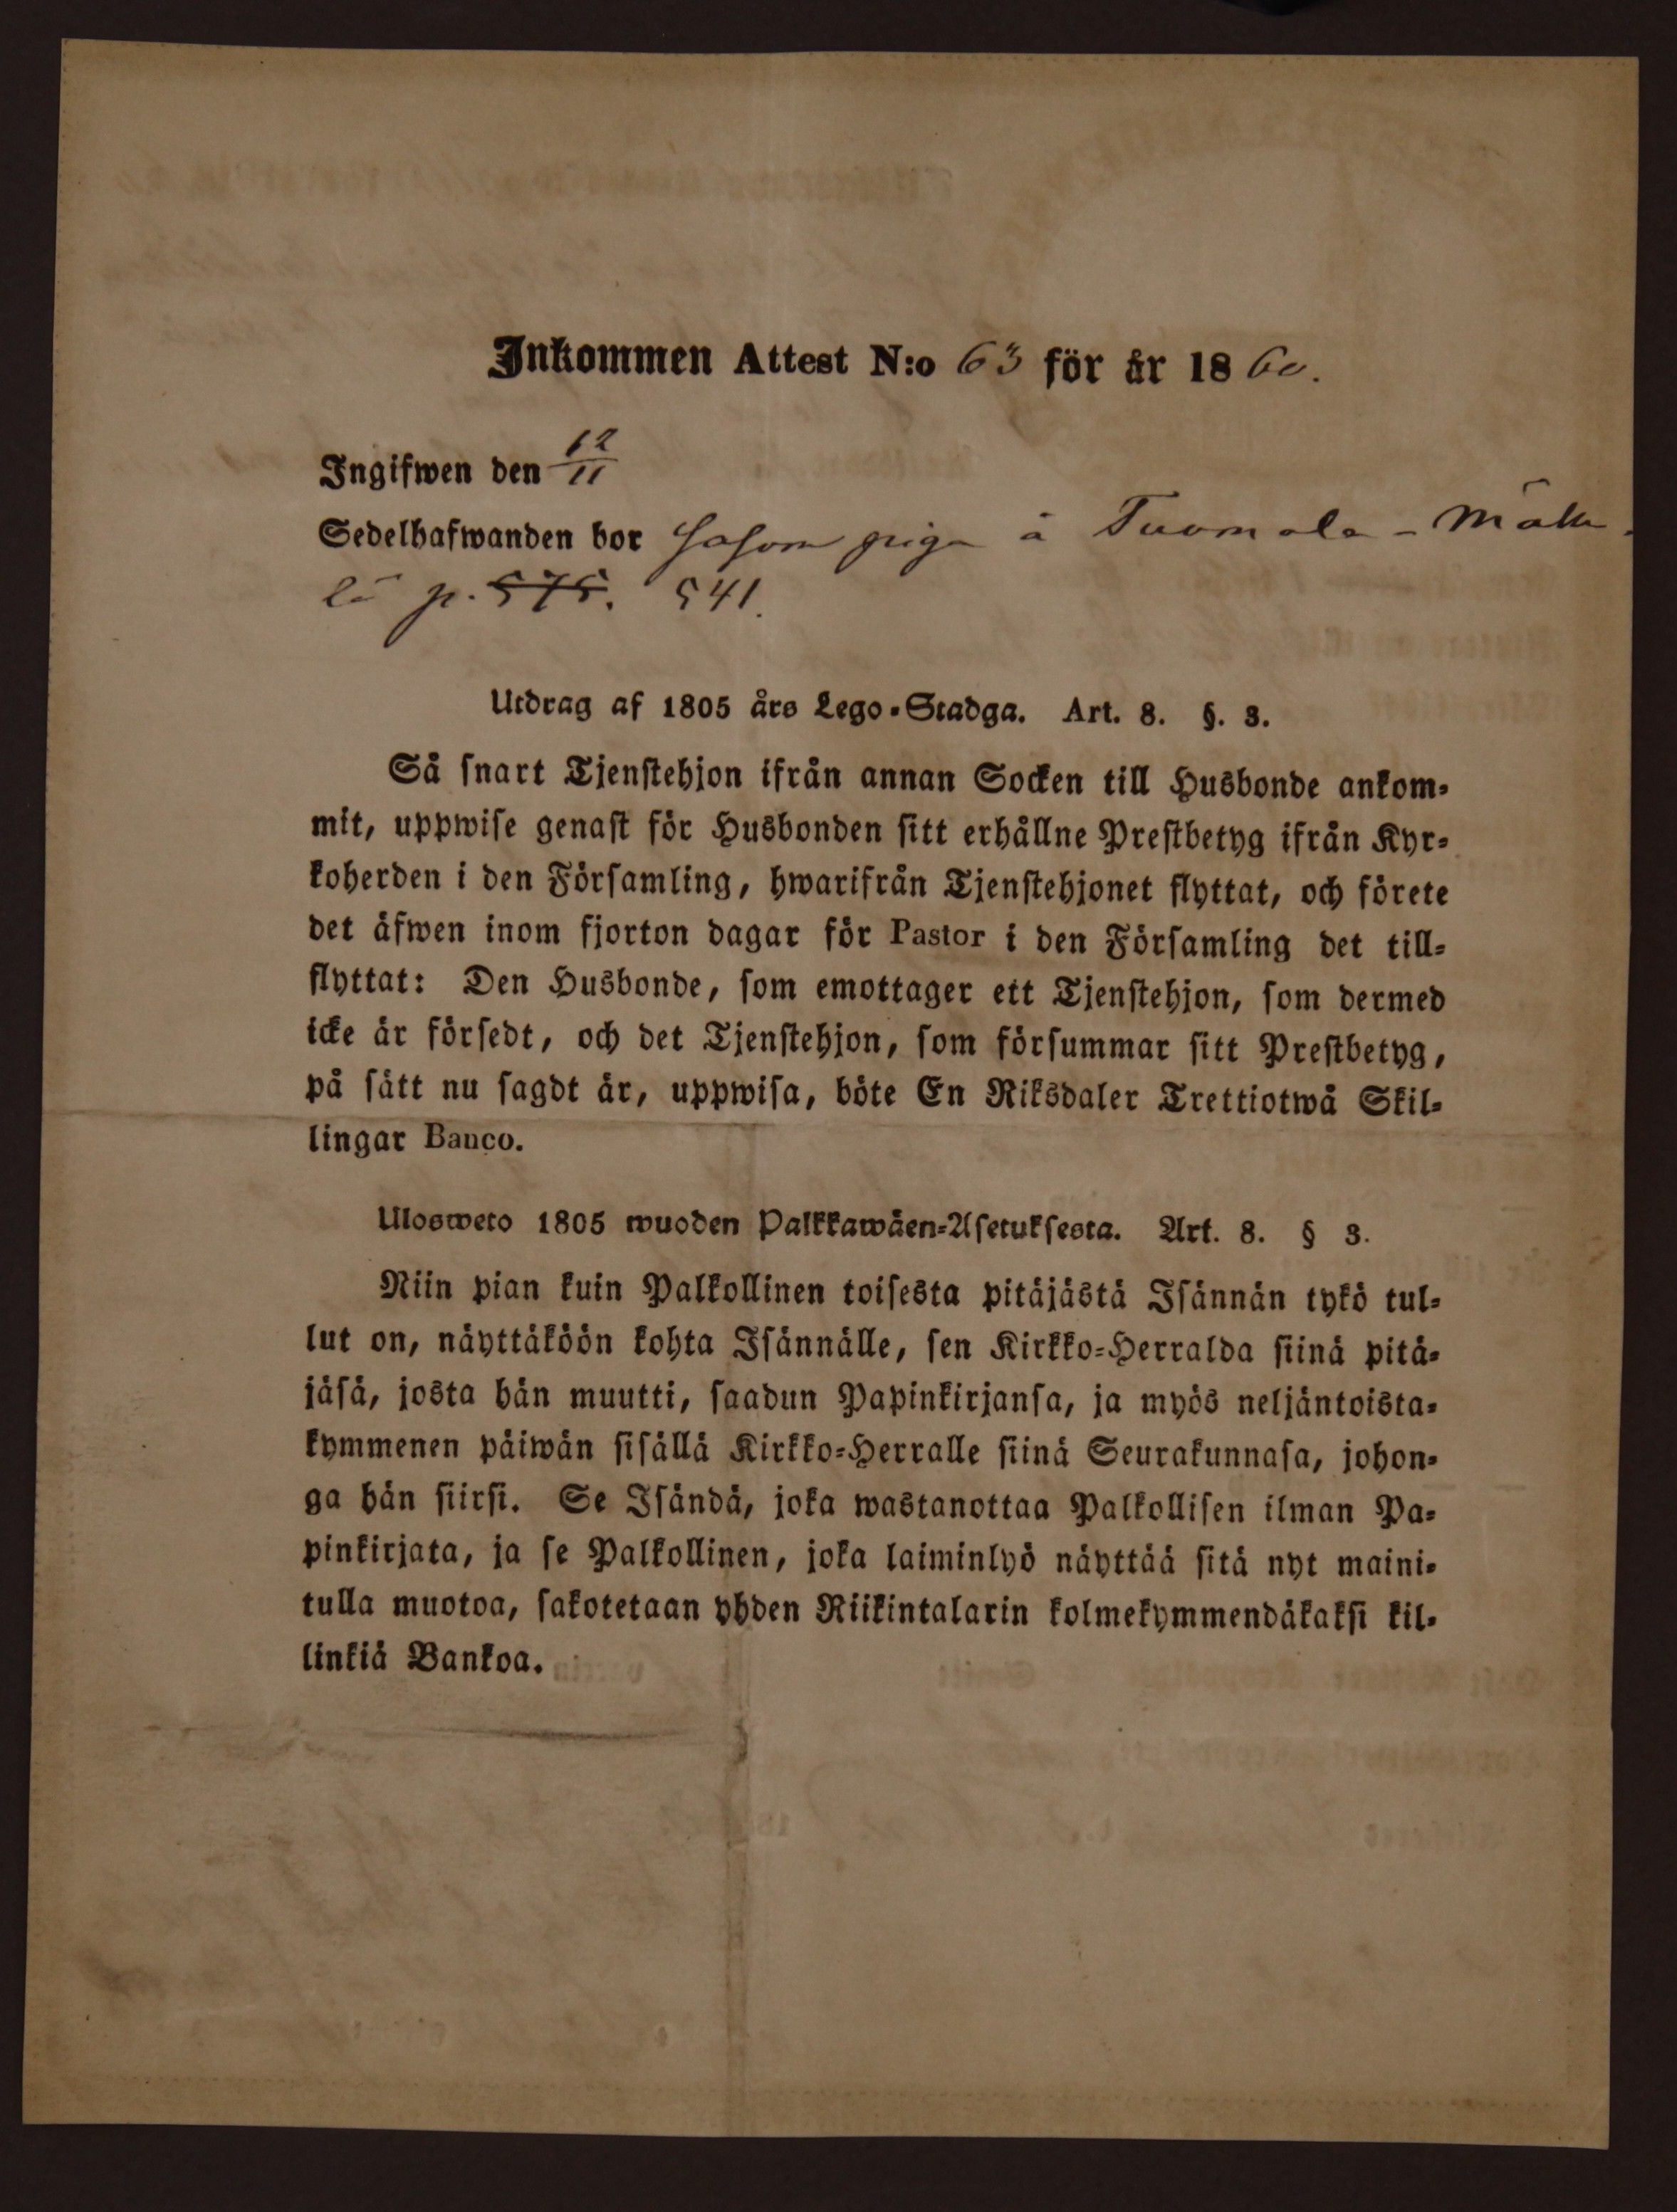 Inkommen Attest N:o 63 för år 1860.
Ingifwen den 12/11
Sedelhafwanden bor såsom piga å Tuomola - Mäkke-
lä p. 575. 541.
Utdrag af 1805 års Lego-Stadga. Art. 8. §. 3.
Så snart Tjenstehjon ifrån annan Socken till Husbonde ankom-
mit, uppwise genast för Husbonden sitt erhållne Prestbetyg ifrån Kyr-
koherden i den Församling, hwarifrån Tjenstehjonet flyttat, och förete
det äfwen inom fjorton dagar för Pastor i den Församling det till-
flyttat: Den Husbonde, som emottager ett Tjenstehjon, som dermed
icke är försedt, och det Tjenstehjon, som försummar sitt Prestbetyg,
på sätt nu sagdt är, uppwisa, böte En Riksdaler Trettiotwå Skil-
lingar Banco.
Ulosweto 1805 wuoden Palkkawäen-Asetuksesta. Art. 8. § 3.
Niin pian kuin Palkollinen toisesta pitäjästä Isännän tykö tul-
lut on, näyttäköön kohta Isännälle, sen Kirkko-Herralda siinä pitä-
jäsä, josta hän muutti, saadun Papinkirjansa, ja myös neljäntoista-
kymmenen päiwän sisällä Kirkko-Herralle siinä Seurakunnasa, johon-
ga hän siirsi. Se Isändä, joka wastanottaa Palkollisen ilman Pa-
pinkirjata, ja se Palkollinen, joka laiminlyö näyttää sitä nyt maini-
tulla muotoa, sakotetaan yhden Riikintalarin kolmekymmendäkaksi kil-
linkiä Bankoa.